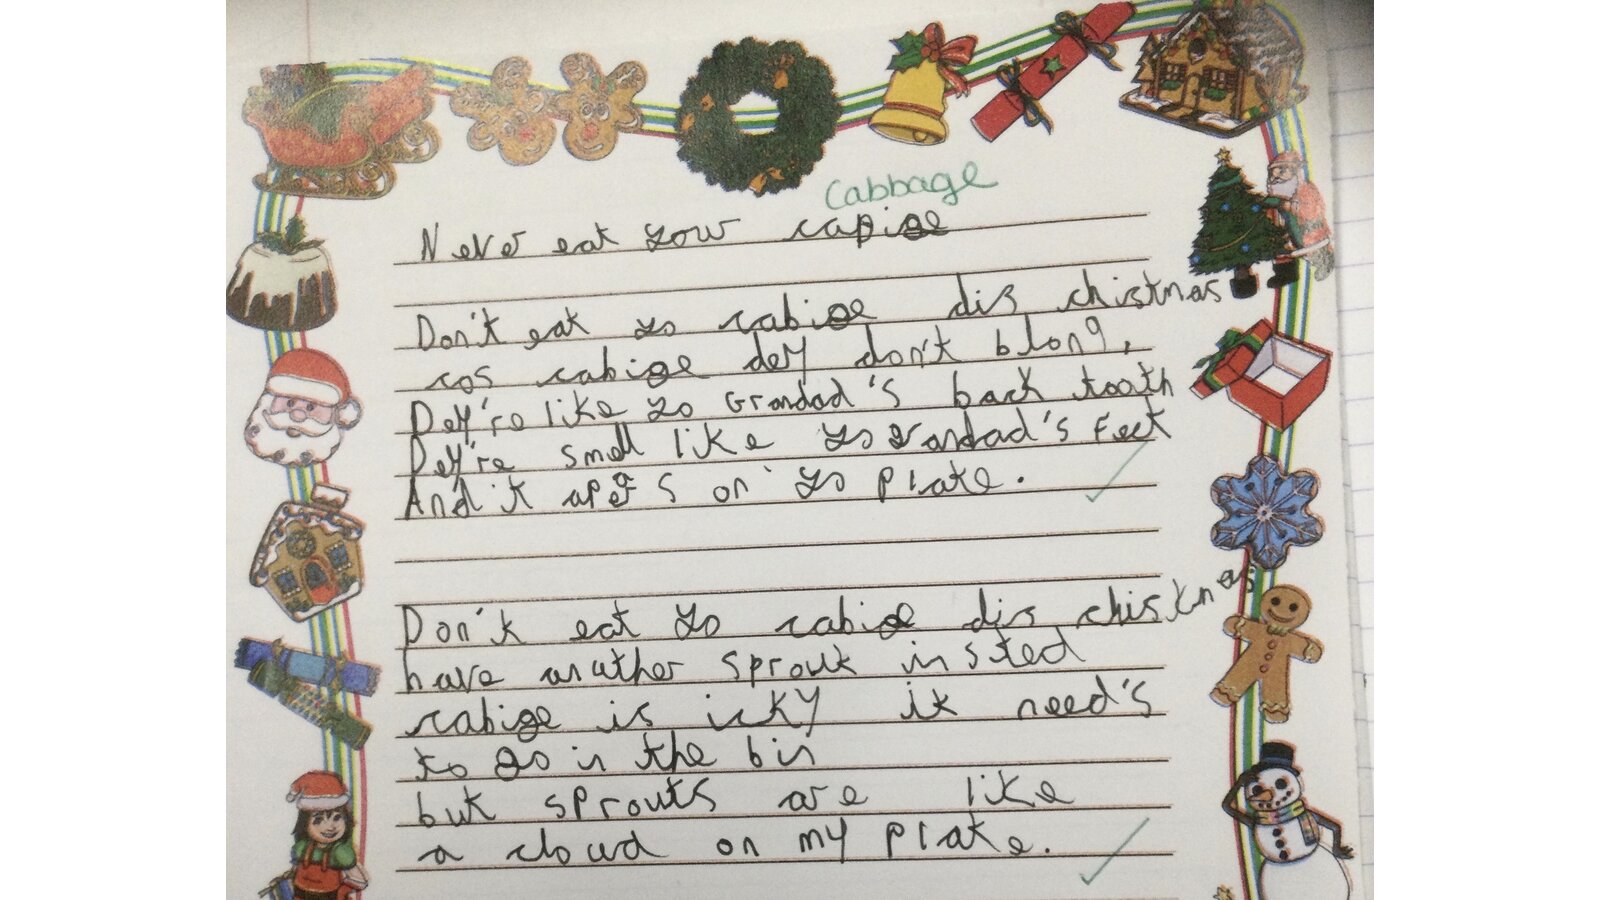 Cabbage
Never eat your capige
Don't eat yo cabige dis chistmas
cos cabige dey don't blong,
Dey're like yo Grandad's back tooth
Dey're smell like yo grandad's Feet
And it apers on yo plate.
Don't eat yo cabige dis chistmas
have anuther sprout insted
cabige is icky it need's
to go in the bin
but sprouts are like
a cloud on my plate.